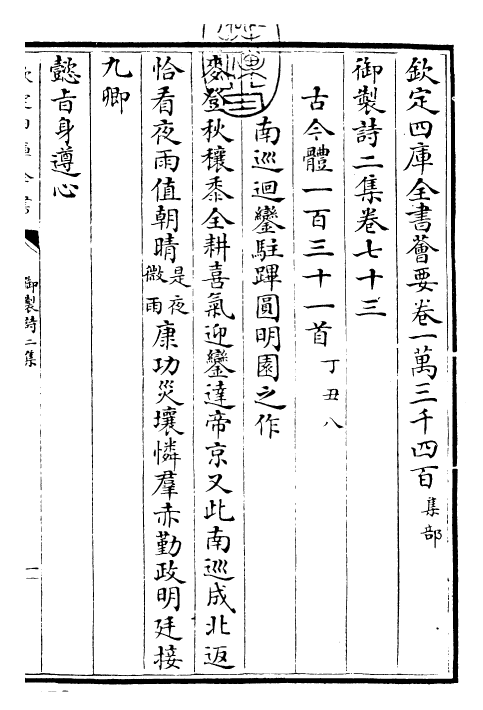 欽定四庫全書薈要卷一萬三千四百 集部
御製詩二集卷七十三
古今體一百三十一首 丁丑八
南巡迴鑾駐蹕圓明園之作
麥登秋穰黍全耕喜氣迎鑾達帝京又此南巡成北返
恰看夜雨值朝晴 是夜微雨 康功災壤憐羣赤勤政明廷接
九卿
懿旨身遵心
御製詩二集